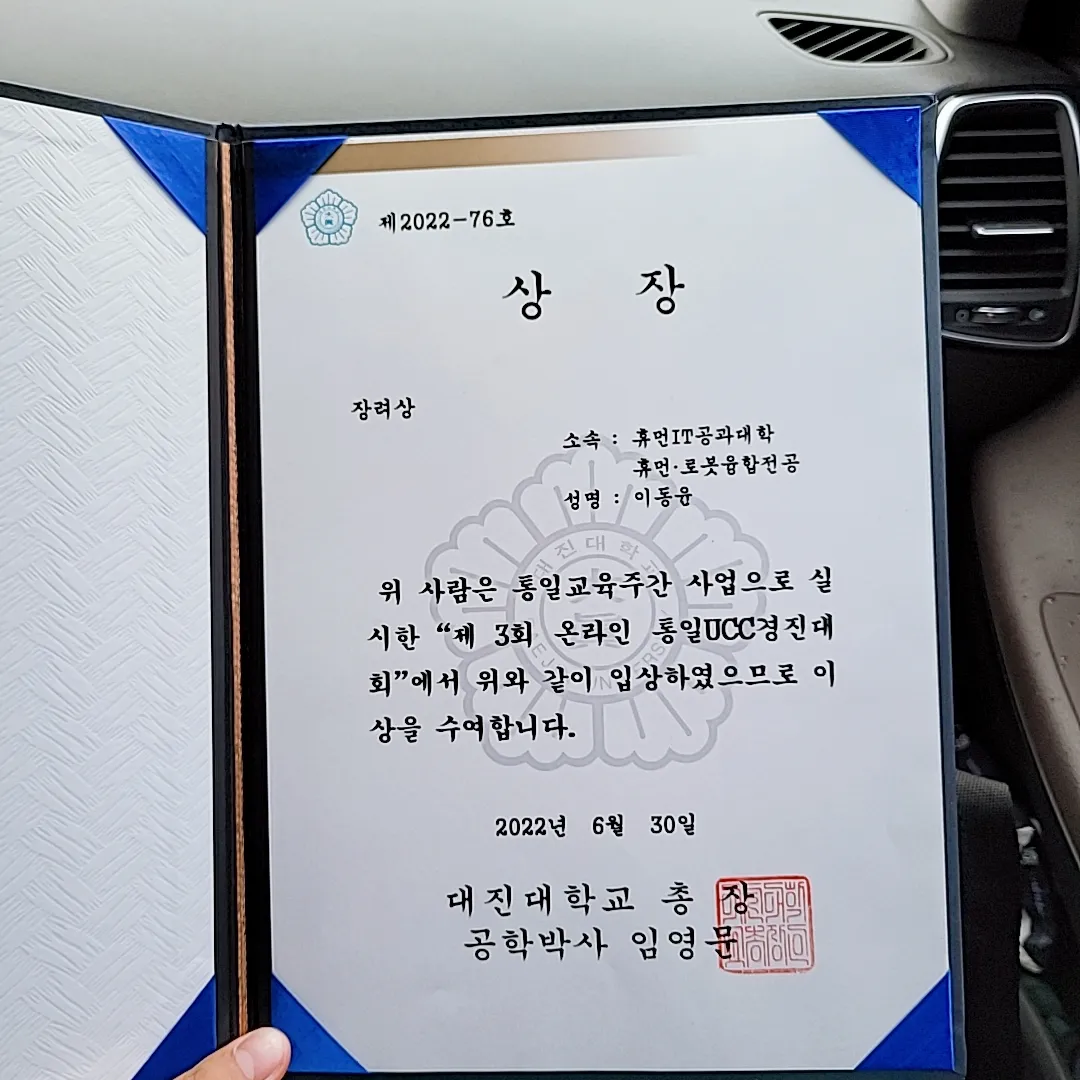 제2022-76호
상 장
장려상
소속 : 휴먼IT공과대학
휴먼·로봇융합전공
성명 : 이동윤
위 사람은 통일교육주간 사업으로 실
시한 “제 3회 온라인 통일UCC경진대
회”에서 위와 같이 입상하였으므로 이
상을 수여합니다.
2022년 6월 30일
대진대학교 총 장
공학박사 임영문
대진대학교